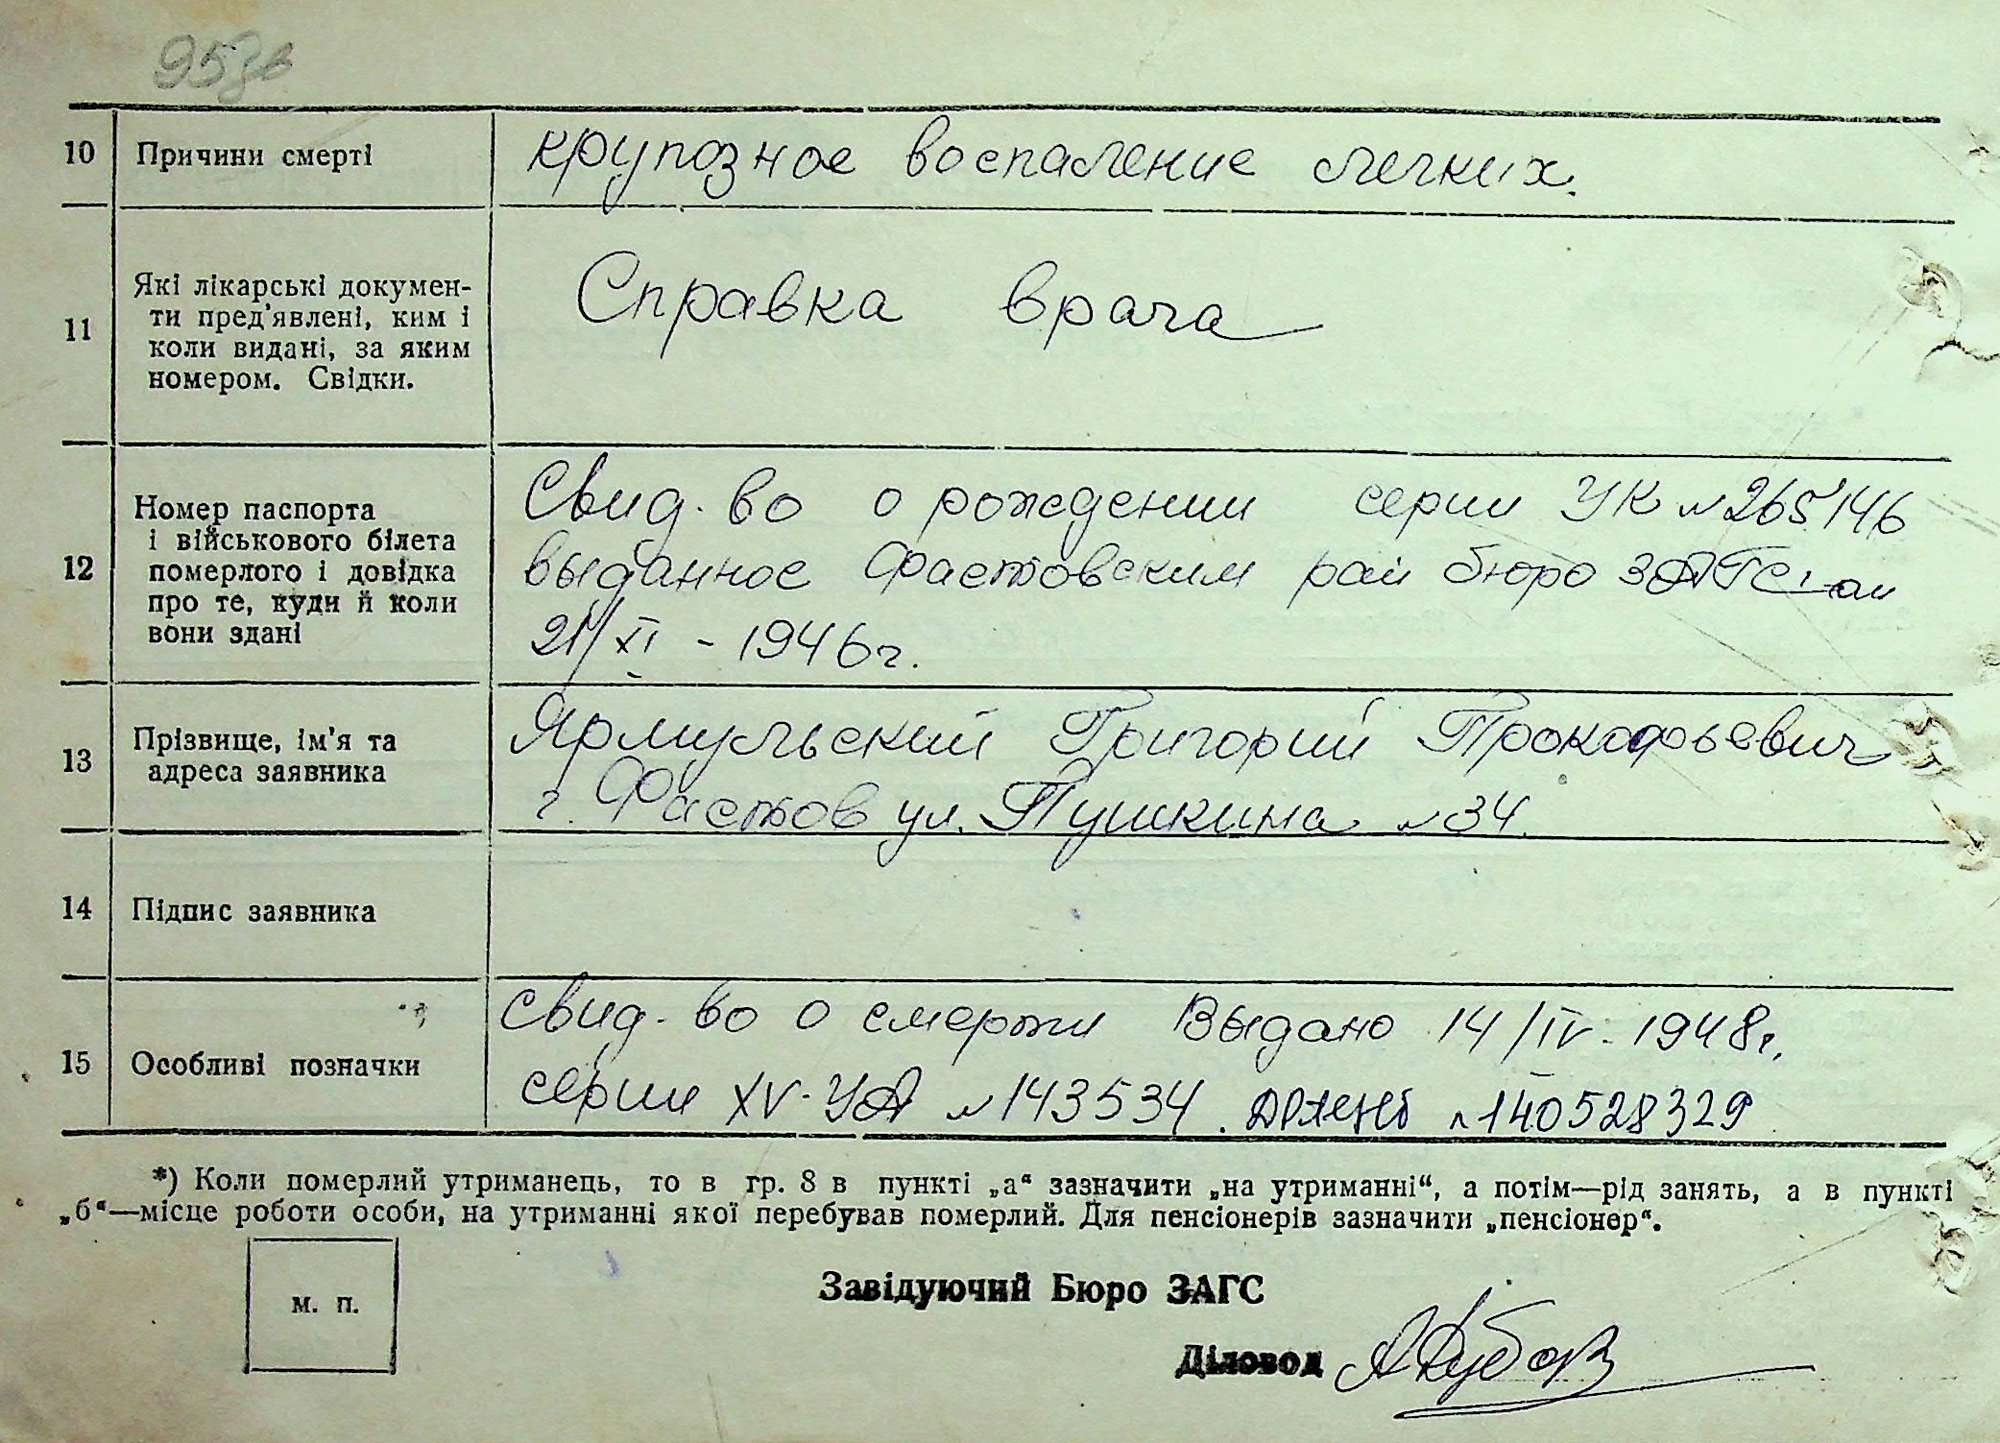 10 Причини смерті крупозное воспаление легких.
11 Які лікарські докумен-
ти пред'явлені, ким і
коли видані, за яким
номером. Свідки.
Справка врача
12 Номер паспорта
і військового білета
померлого і довідка
про те, куди й коли
вони здані
Свид-во о рождении серии УК №265146
выданное Фастовским рай бюро ЗАГС-ом
21/XI - 1946 г.
13 Прізвище, ім'я та
адреса заявника
Ярмульский Григорий Прокофьевич
г. Фастов ул. Пушкина №34.
14 Підпис заявника
15 Особливі позначки
Свид-во о смерти Выдано 14/IV - 1948 г.
серии XV-УА №143534. №140528329
*) Коли померлий утриманець, то в гр. 8 в пункті „а“ зазначити „на утриманні“, а потім—рід занять, а в пункті
„б“—місце роботи особи, на утриманні якої перебував померлий. Для пенсіонерів зазначити „пенсіонер“.
м. п.
Завідуючий Бюро ЗАГС
Діловод